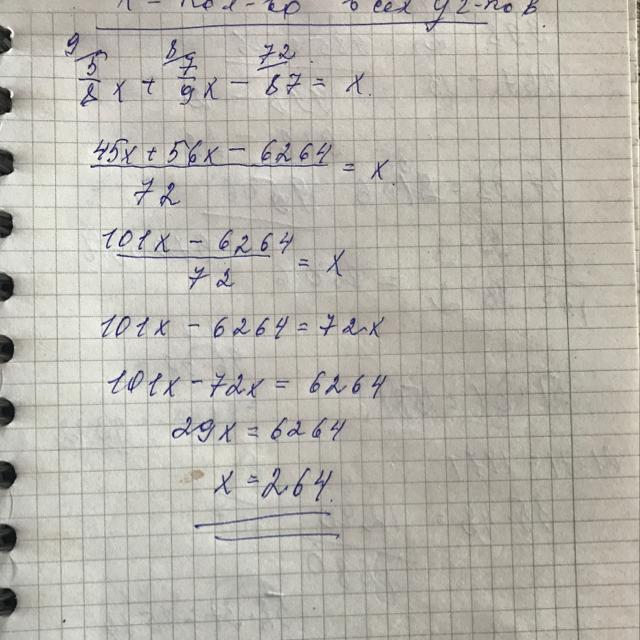 x - кол-во всех уч-ков
9 8 72
5/8 x + 7/9 x - 87 = x.
45x + 56x - 6264 / 72 = x.
101x - 6264 / 72 = x
101x - 6264 = 72x
101x - 72x = 6264
29x = 6264
x = 264.